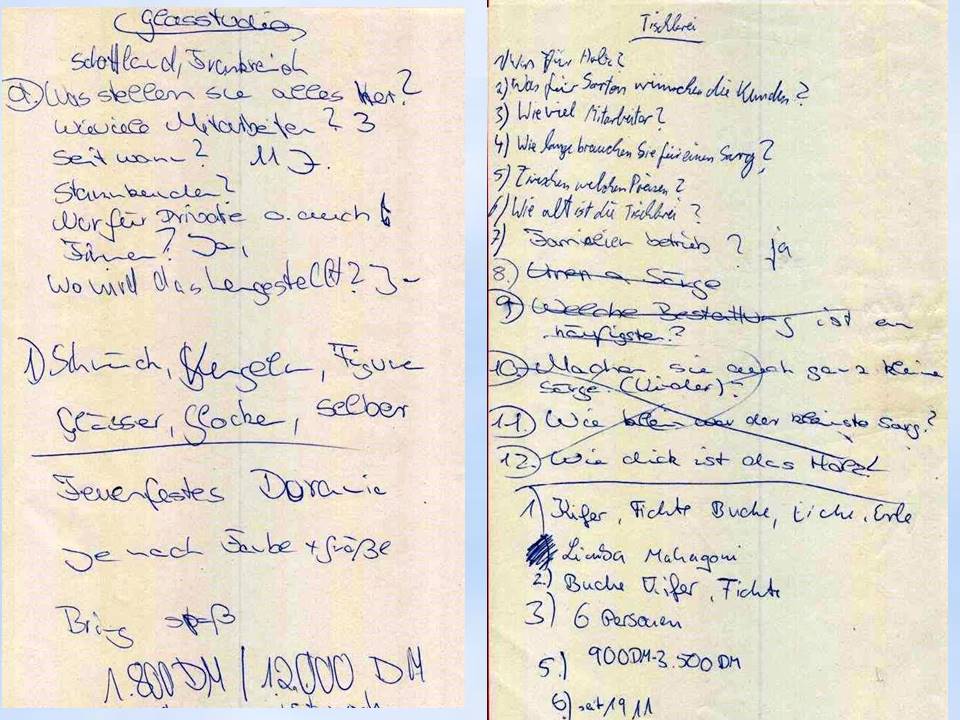 Glasstudio
Schottland, Frankreich
a) Was stellen sie alles her?
Wieviele Mitarbeiter? 3
Seit wann? 11 J.
Stammkunden?
Nur für Private o. auch
Firmen? Ja,
Wo wird das hergestellt?
1) Schmuch, Kugeln, Figure
Glässer, Glocke, selber
Feuerfestes
Je nach Farbe + größe
Bring spaß
1.800 DM / 12.000 DM
Tischlrei
1) Was für Holz?
2) Was für Sorten wünschen die Kunden?
3) Wieviel Mitarbeiter?
4) Wie lange brauchen Sie für einen Sarg?
5) Zwischen welchen Preisen?
6) Wie alt ist die Tischlrei?
7) Familien betrieb? ja
8.) Särge
9.) Welche Bestattung ist am
häufigsten?
10.) Machen sie auch ganz kleine
Särge. (Kinder)?
11.) Wie klein war der kleinste Sarg?
12.) Wie dick ist das Holz?
1) Kifer, Fichte Buche, Eiche, Erle
Limba Mahagoni
2.) Buche Kifer, Fichte
3) 6 Personen
5.) 900DM-3.500DM
6) seit 1911